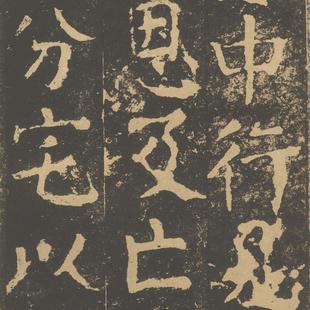 中行
恩及亡
分宅以